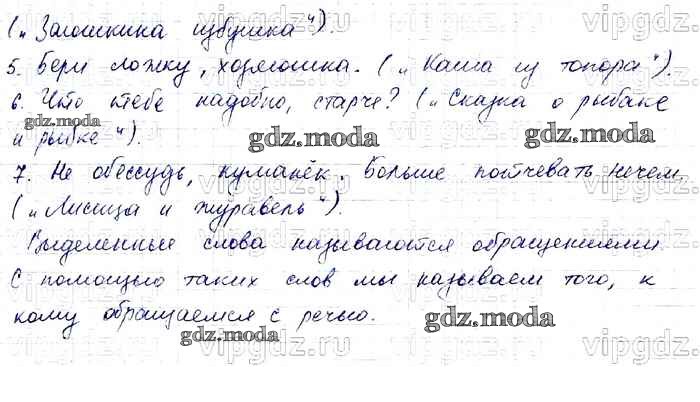 („Заюшкина избушка").
5. Бери ложку, хозяюшка. („Каша из топора").
6. Что тебе надобно, старче? („Сказка о рыбаке
и рыбке").
7. Не обессудь, куманёк. Больше потчевать нечем.
(„Лисица и журавель").
Выделенные слова называются обращениями.
С помощью таких слов мы называем того, к
кому обращаемся с речью.
gdz.moda
gdz.moda
gdz.moda
gdz.moda
gdz.moda
vipgdz.ru
vipgdz.ru
vipgdz.ru
vipgdz.ru